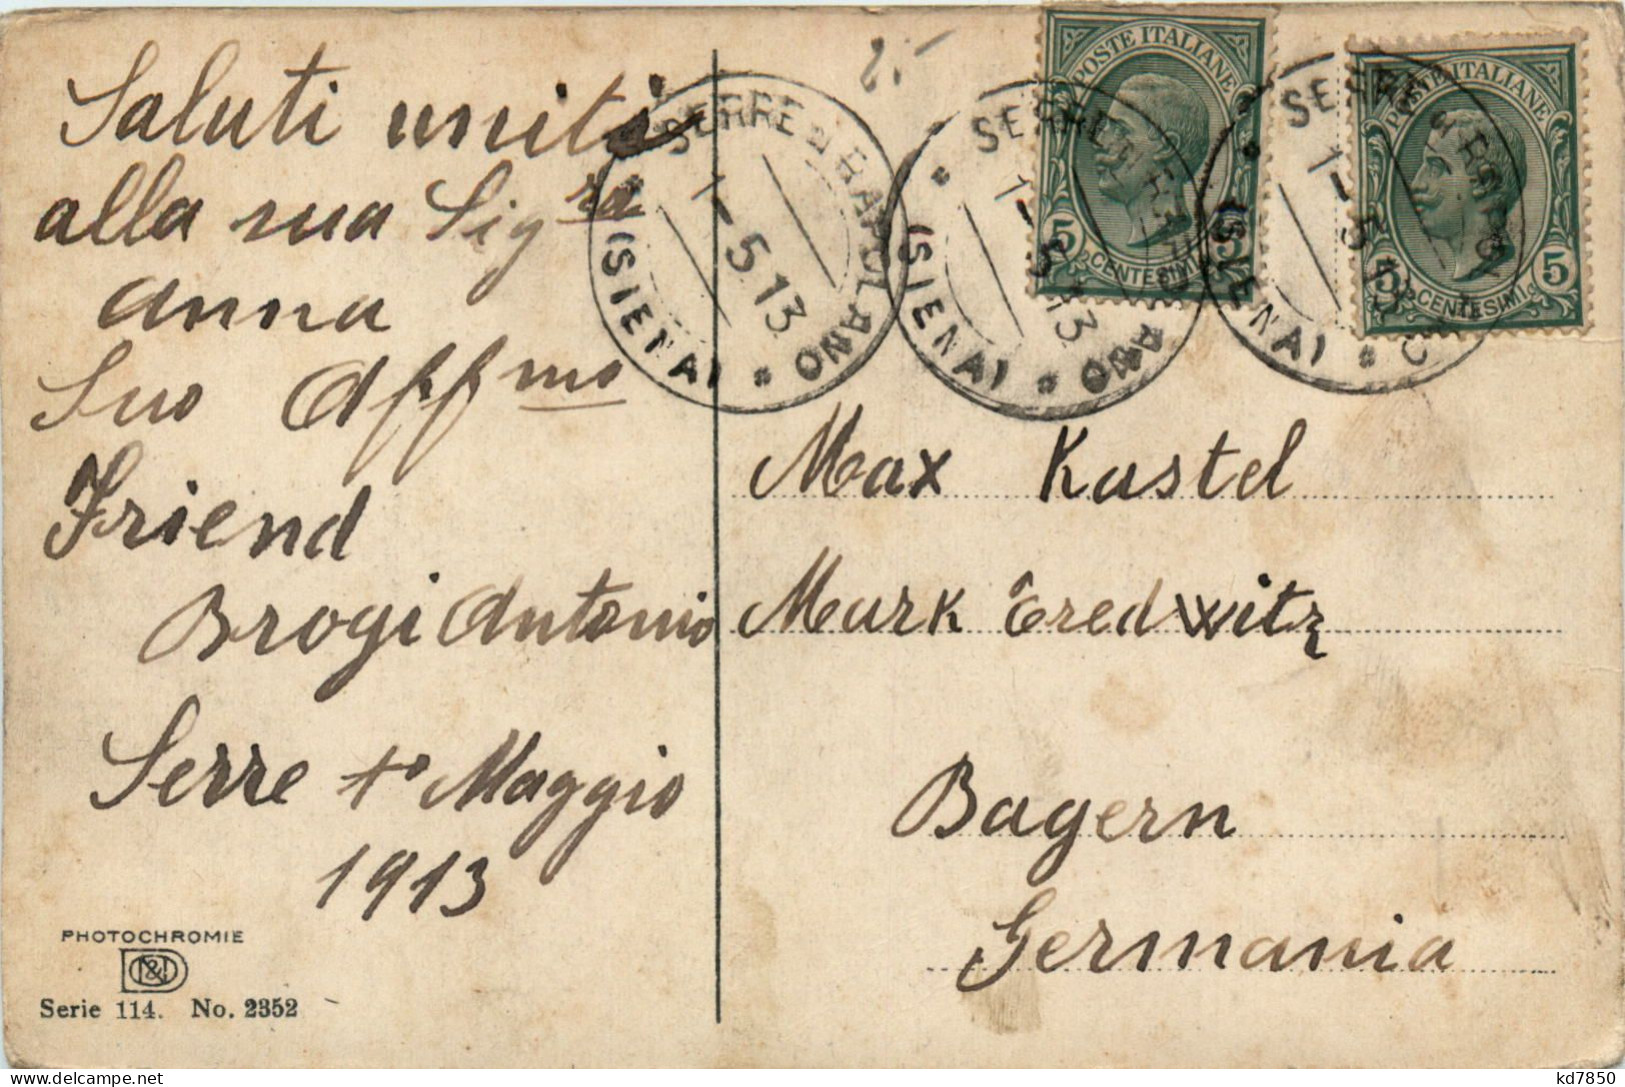 Saluti uniti
alla sua Sig.ra
Anna
Suo Affmo
Friend
Brogi Antonio
Serre 1o Maggio
1913
PHOTOCHROMIE
N&D
Serie 114. No. 2352
2.-
SERRE DI RAPOLANO
(SIENA)
1-5.13
SERRE DI RAPOLANO
(SIENA)
1-5.13
SERRE DI RAPOLANO
(SIENA)
1-5.13
POSTE ITALIANE
5 CENTESIMI 5
POSTE ITALIANE
5 CENTESIMI 5
Max Kastel
Mark Eredwitz
Bagern
Germania
kd7850